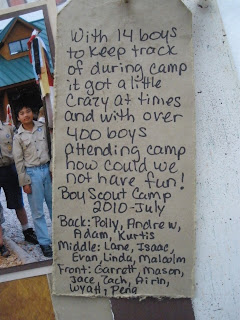 With 14 boys
to keep track
of during camp
it got a little
crazy at times
and with over
400 boys
attending camp
how could we
not have fun!
Boy Scout Camp
2010-July
Back: Polly, Andrew,
Adam, Kurtis
Middle: Lane, Isaac,
Evan, Linda, Malcolm
Front: Garrett, Mason,
Jace, Zach, Airin,
Wyatt, Pena